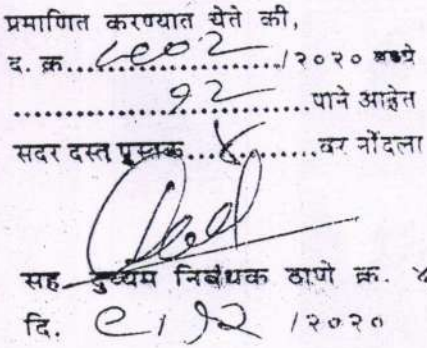 प्रमाणित करण्यात येते की,
द. क्र................/२०२० मध्ये
........१२........पाने आहेत
सदर दस्त पुस्तक...४......वर नोंदला
सह दुय्यम निबंधक ठाणे क्र. ४
दि. ९/१२ /२०२०